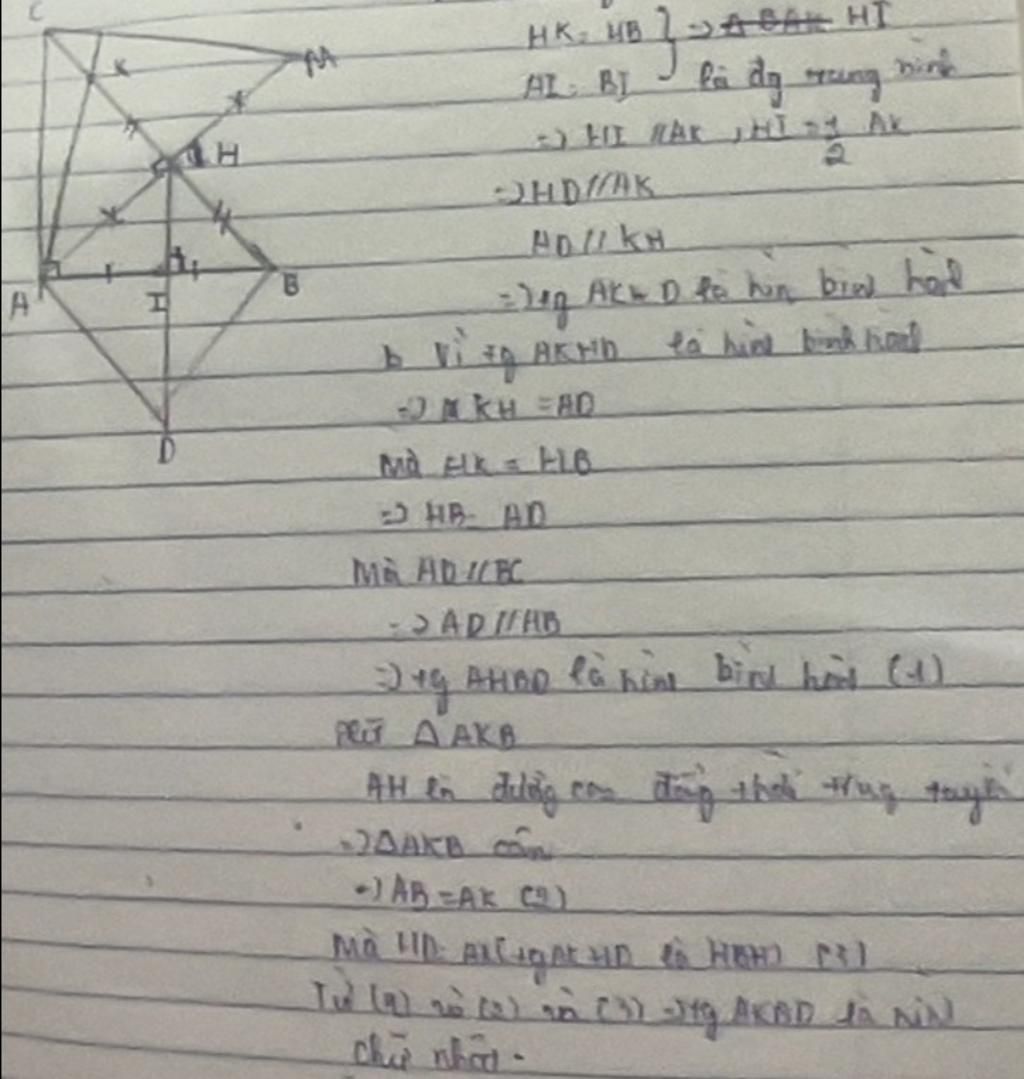 C
K
M
H
A
I
B
D
HK = HB } => HI
AI = BI là đg trung bình
=> HI // AK, HI = 1/2 AK
=> HD // AK
AD // KH
=> tg AKHD là hìn bìn hàn
b Vì tg AKHD là hìn bình hàn
=> KH = AD
Mà HK = HB
=> HB = AD
Mà AD // BC
=> AD // HB
=> tg AHBD là hìn bìn hàn (1)
Xét Δ AKB
AH là đường cao đồng thời trung tuyến
=> Δ AKB cân
=> AB = AK (2)
Mà HD = AK (tg AKHD là HBH) (3)
Từ (1) và (2) và (3) => tg AKBD là hìn
chữ nhật.